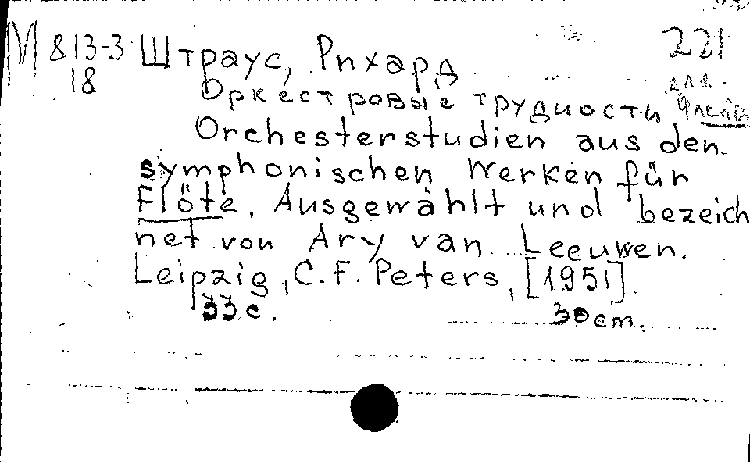 М 813-3 Штраус, Рихард 221
18
Оркестровые трудности для флейты
Orchesterstudien aus den
symphonischen Werken für
Flöte, Ausgewählt und bezeich
net von Ary van Leeuwen.
Leipzig, C.F. Peters, [1951].
33 c. 30 cm.